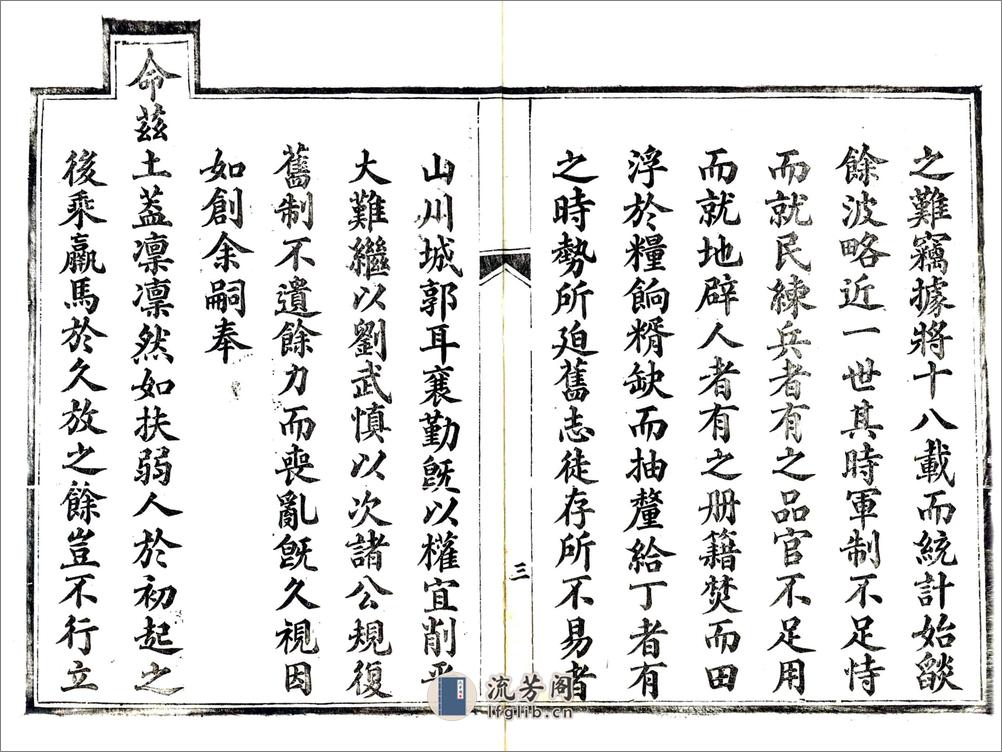 之難竊據將十八載而統計始燄
餘波略近一世其時軍制不足恃
而就民練兵者有之品官不足用
而就地辟人者有之册籍焚而田
浮於糧餉糈缺而抽釐給丁者有
之時勢所廹舊志徒存所不易者
三
山川城郭耳襄勤旣以權宜削平
大難繼以劉武慎以次諸公規復
舊制不遺餘力而喪亂旣久視因
如創余嗣奉
命茲土葢凛凛然如扶弱人於初起之
後乘羸馬於久放之餘豈不行立
流芳阁
lfglib.cn